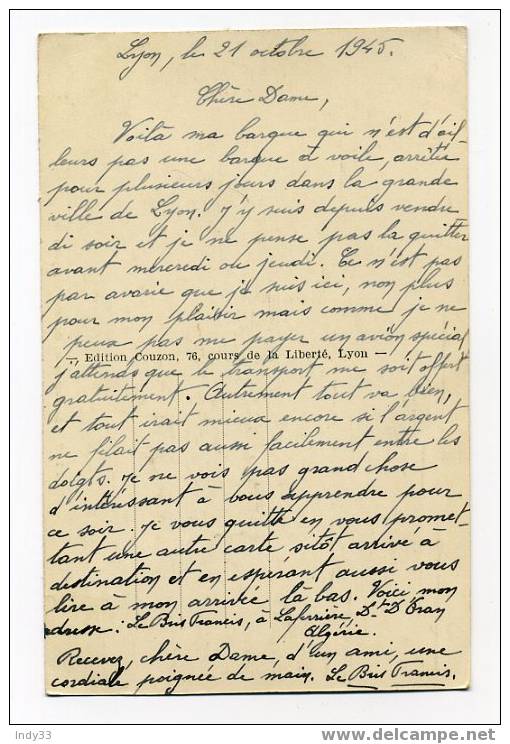 Lyon, le 21 octobre 1945.
Chère Dame,
Voilà ma barque qui n'est d'ail
leurs pas une barque à voile, arrêtée
pour plusieurs jours dans la grande
ville de Lyon. J'y suis depuis vendre
di soir et je ne pense pas la quitter
avant mercredi ou jeudi. Ce n'est pas
par avarie que je suis ici, non plus
pour mon plaisir mais comme je ne
peux pas me payer un avion spécial
— Edition Couzon, 76, cours de la Liberté, Lyon —
j'attends que le transport me soit offert
gratuitement. Autrement tout va bien,
et tout irait mieux encore si l'argent
ne filait pas aussi facilement entre les
doigts. Je ne vois pas grand chose
d'intéressant à vous apprendre pour
ce soir. Je vous quitte en vous promet-
tant une autre carte sitôt arrivé à
destination et en espérant aussi vous
lire à mon arrivée là bas. Voici mon
adresse: Le Bris Francis, à Laferrière, Dt D'Oran
Algérie.
Recevez, chère Dame, d'un ami, une
cordiale poignée de main. Le Bris Francis.
Indy33
www.delcampe.net